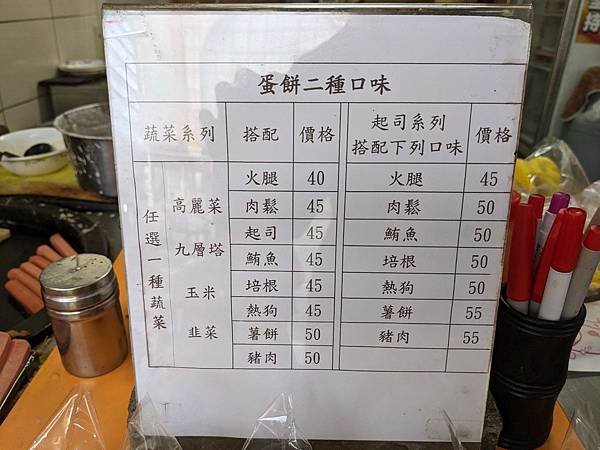 蛋餅二種口味
蔬菜系列 搭配 價格 起司系列 搭配下列口味 價格
任選一種蔬菜
高麗菜
九層塔
玉米
韭菜
火腿 40 火腿 45
肉鬆 45 肉鬆 50
起司 45 鮪魚 50
鮪魚 45 培根 50
培根 45 熱狗 50
熱狗 45 薯餅 55
薯餅 50 豬肉 55
豬肉 50